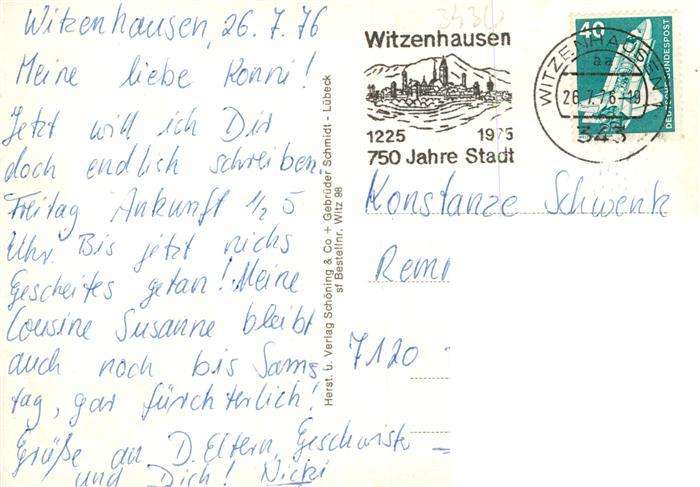 Witzenhausen, 26.7.76
Meine liebe Konni!
Jetzt will ich Dir
doch endlich schreiben.
Freitag Ankunft 1/2 5
Uhr. Bis jetzt nichs
Gescheites getan! Meine
Cousine Susanne bleibt
auch noch bis Sams
tag, gar fürchterlich!
Grüße an D. Eltern, Geschwiste
und Dich! Nicki
Herst. u. Verlag Schöning & Co + Gebrüder Schmidt - Lübeck
sf Bestellnr. Witz 98
Witzenhausen
1225 1975
750 Jahre Stadt
WITZENHAUSEN
aa
26.7.76-19
343
40
DEUTSCHE BUNDESPOST
Konstanze Schwenk
7120